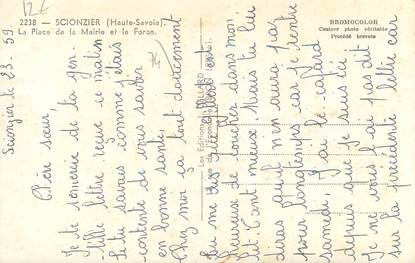 12€
2238 - SCIONZIER (Haute-Savoie).
La Place de la Mairie et le Foron.
BROMOCOLOR
Couleur photo véritable
Procédé breveté
Scionzier le 23. 59
Chère sœur,
Je te remercie de ta gen-
-tille lettre reçue ce matin
Si tu savais comme j'étais
contente de vous savoir
en bonne santé.
Chez moi ça tout doucement
Tu me dis
heureuse de coucher dans mon
lit. Tant mieux. Mais tu lui
diras qu'il n'en aura pas
pour longtemps car je rentre
samedi, j'ai le cafard
depuis que je suis ici
Je ne vous l'ai pas dit
sur la précédente lettre car
Les Editions